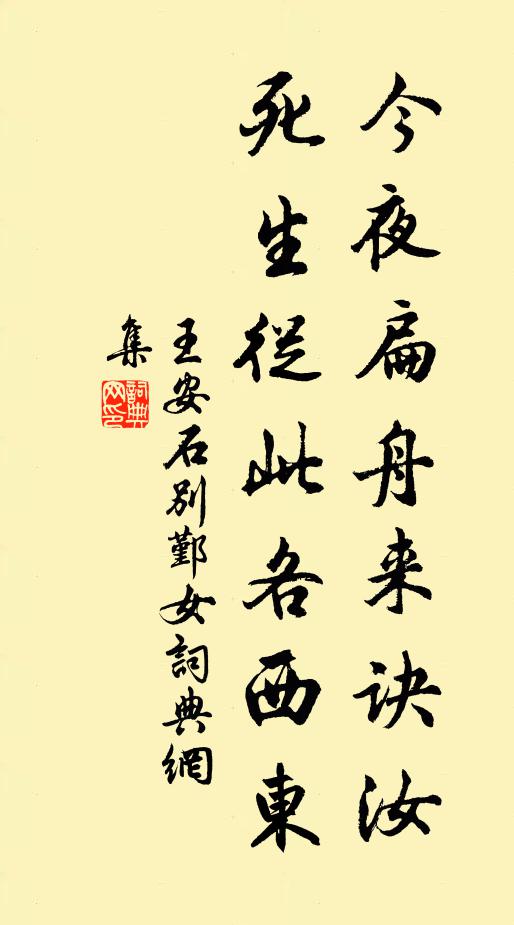 今夜扁舟来诀汝
死生從此各西東
王安石别鄞女詞典網
集
詞典网印